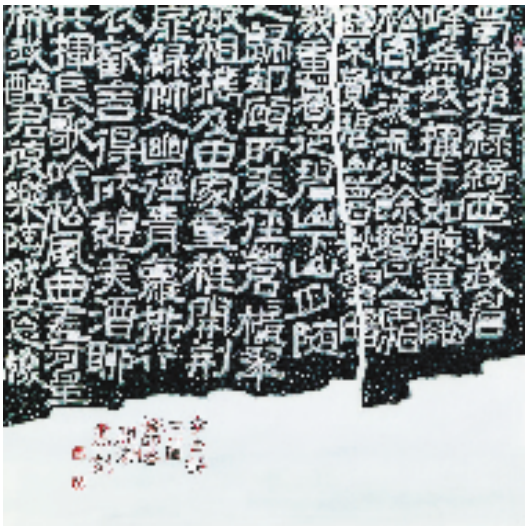 蜀僧抱綠綺西下峨眉
峰為我一揮手如聽萬壑
松客心洗流水餘響入霜
鐘不覺碧山暮秋雲暗
幾重暮從碧山下山月隨
人歸却顧所來徑蒼橫翠
微相攜及田家童稚開荊
扉綠竹入幽徑青蘿拂行
衣歡言得所憩美酒聊
共揮長歌吟松風曲盡河星
稀我醉君復樂陶然共忘機